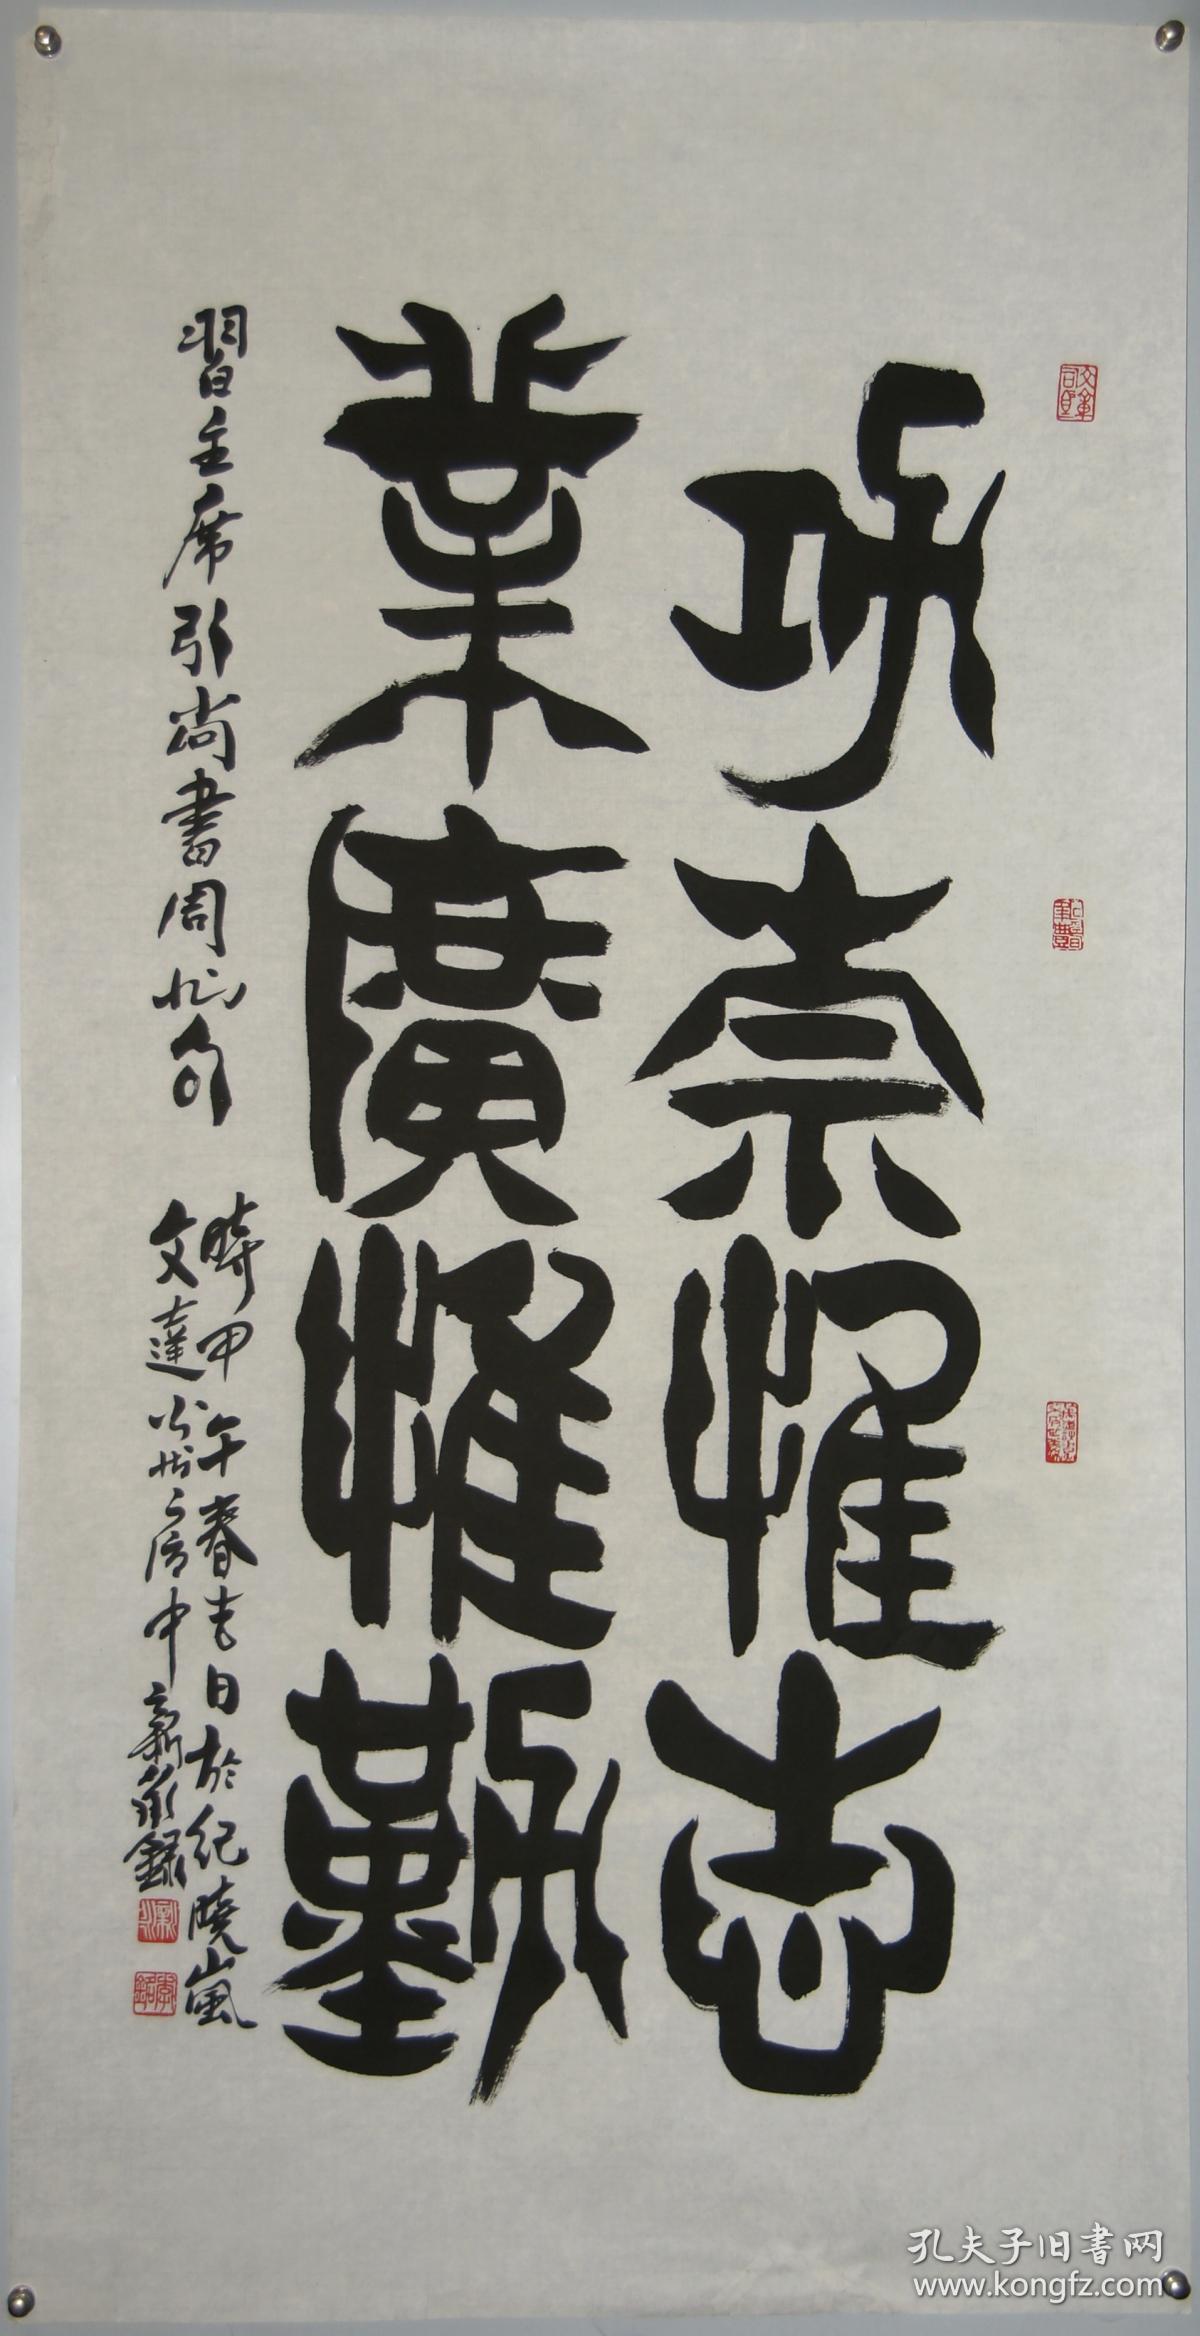 功崇惟志
業廣惟勤
習主席引尚書周官句
時甲午春吉日於紀曉嵐
文達公故居中
錄
孔夫子旧书网
www.kongfz.com